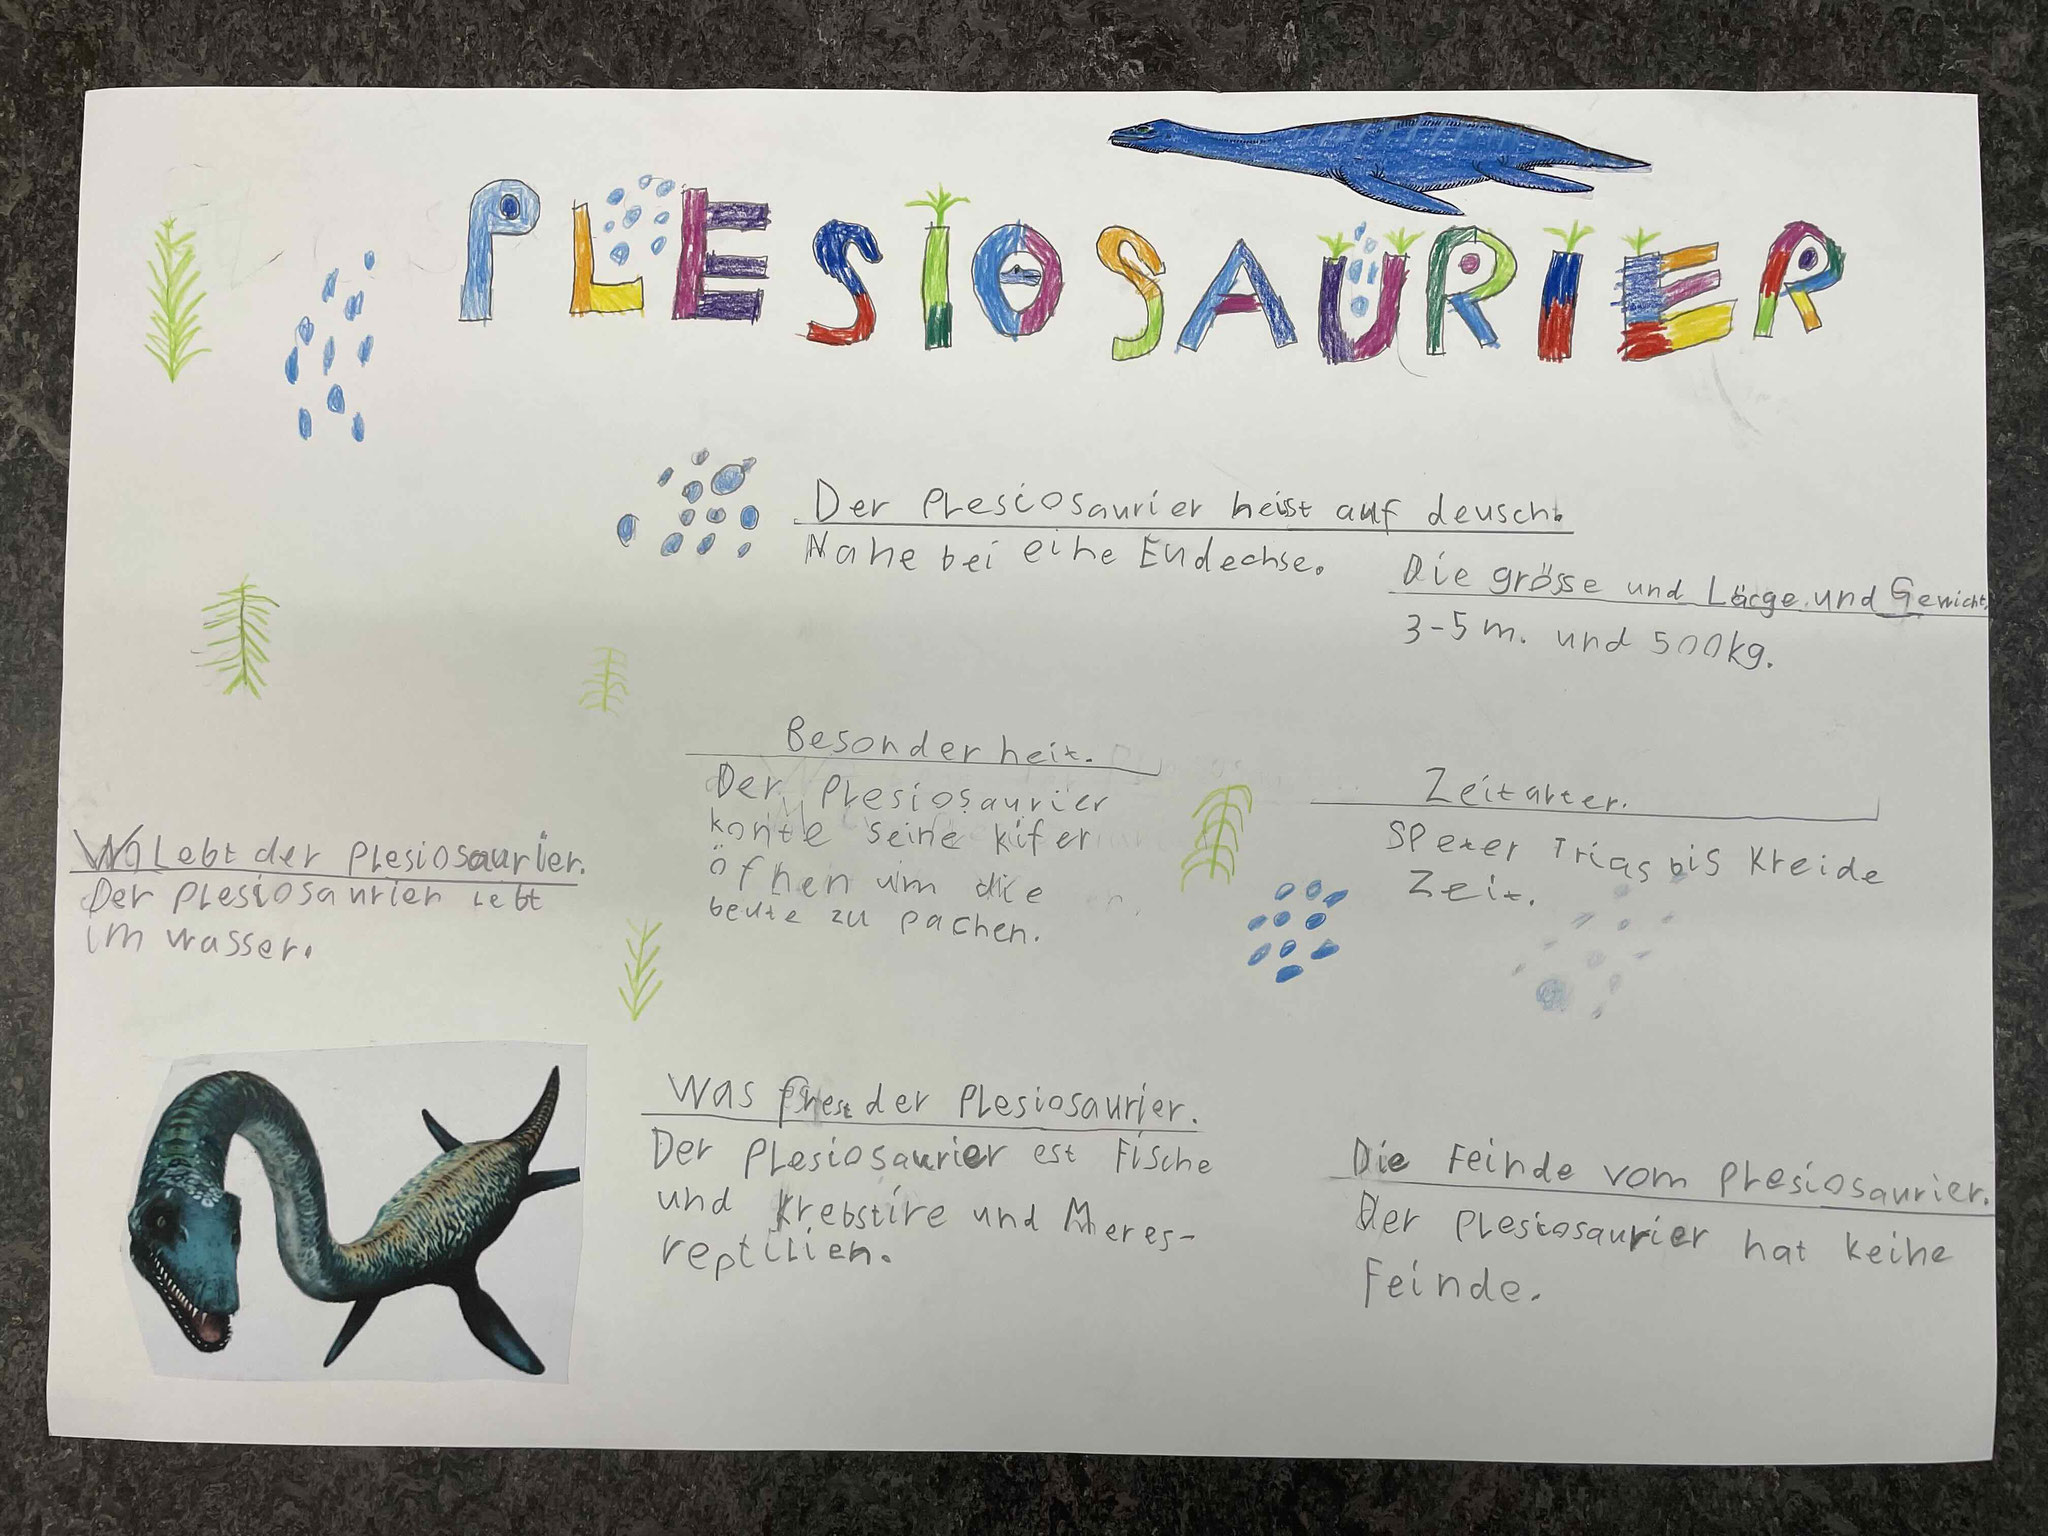 PLESIOSAURIER
Der Plesiosaurier heist auf deusch.
Nahe bei eine Eudechse.
Die grösse und Länge und Gewicht.
3-5m. und 500kg.
Besonderheit.
Der Plesiosaurier
konte seine kifer
öfnen um die
beute zu pachen.
Zeitalter.
Speter Trias bis Kreide
Zeit.
Wo Lebt der Plesiosaurier.
Der Plesiosaurier Lebt
im wasser.
Was frest der Plesiosaurier.
Der Plesiosaurier est Fische
und Krebstire und Meres-
reptilien.
Die Feinde vom Plesiosaurier.
Der Plesiosaurier hat keine
Feinde.